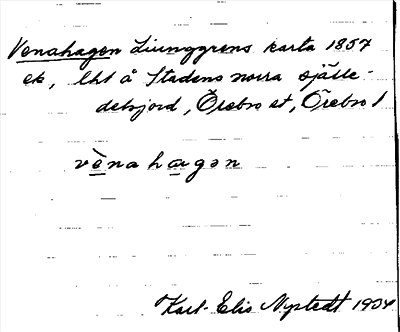 Venahagen Ljunggrens karta 1857
ek, lht å Stadens norra själle-
delsjord, Örebro st, Örebro l
vèna hagən
Karl-Elis Nystedt 1934